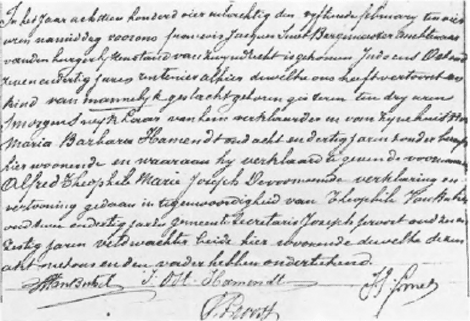 In het jaar achttien honderd vier en tachtig den vyftienden february ten vier
uren namiddag voor ons francois Jacques Smet Burgemeester ambtenaar
van den burgerlyken stand van is gekomen Judocus Odt oud
zeven en dertig jaren rentenier alhier dewelke ons heeft vertoont een
kind van mannelyk geslacht geboren gisteren ten dry uren
smorgens van hem verklaarder en van zyne huisvrouw
Maria Barbara Hamendt oud acht en dertig jaren zonder beroep
hier woonende en waaraan hy verklaard te geven de voornaamen
Alfred Theophile Marie Joseph De voornoemde verklaring en
vertooning gedaan in tegenwoordigheid van Theophile
oud twee en dertig jaren gemeente secretaris Joseph oud
zestig jaren veldwachter beide hier woonende dewelke dezen
acht met ons en den vader hebben onderteekend.
J. Odt - Hamendt